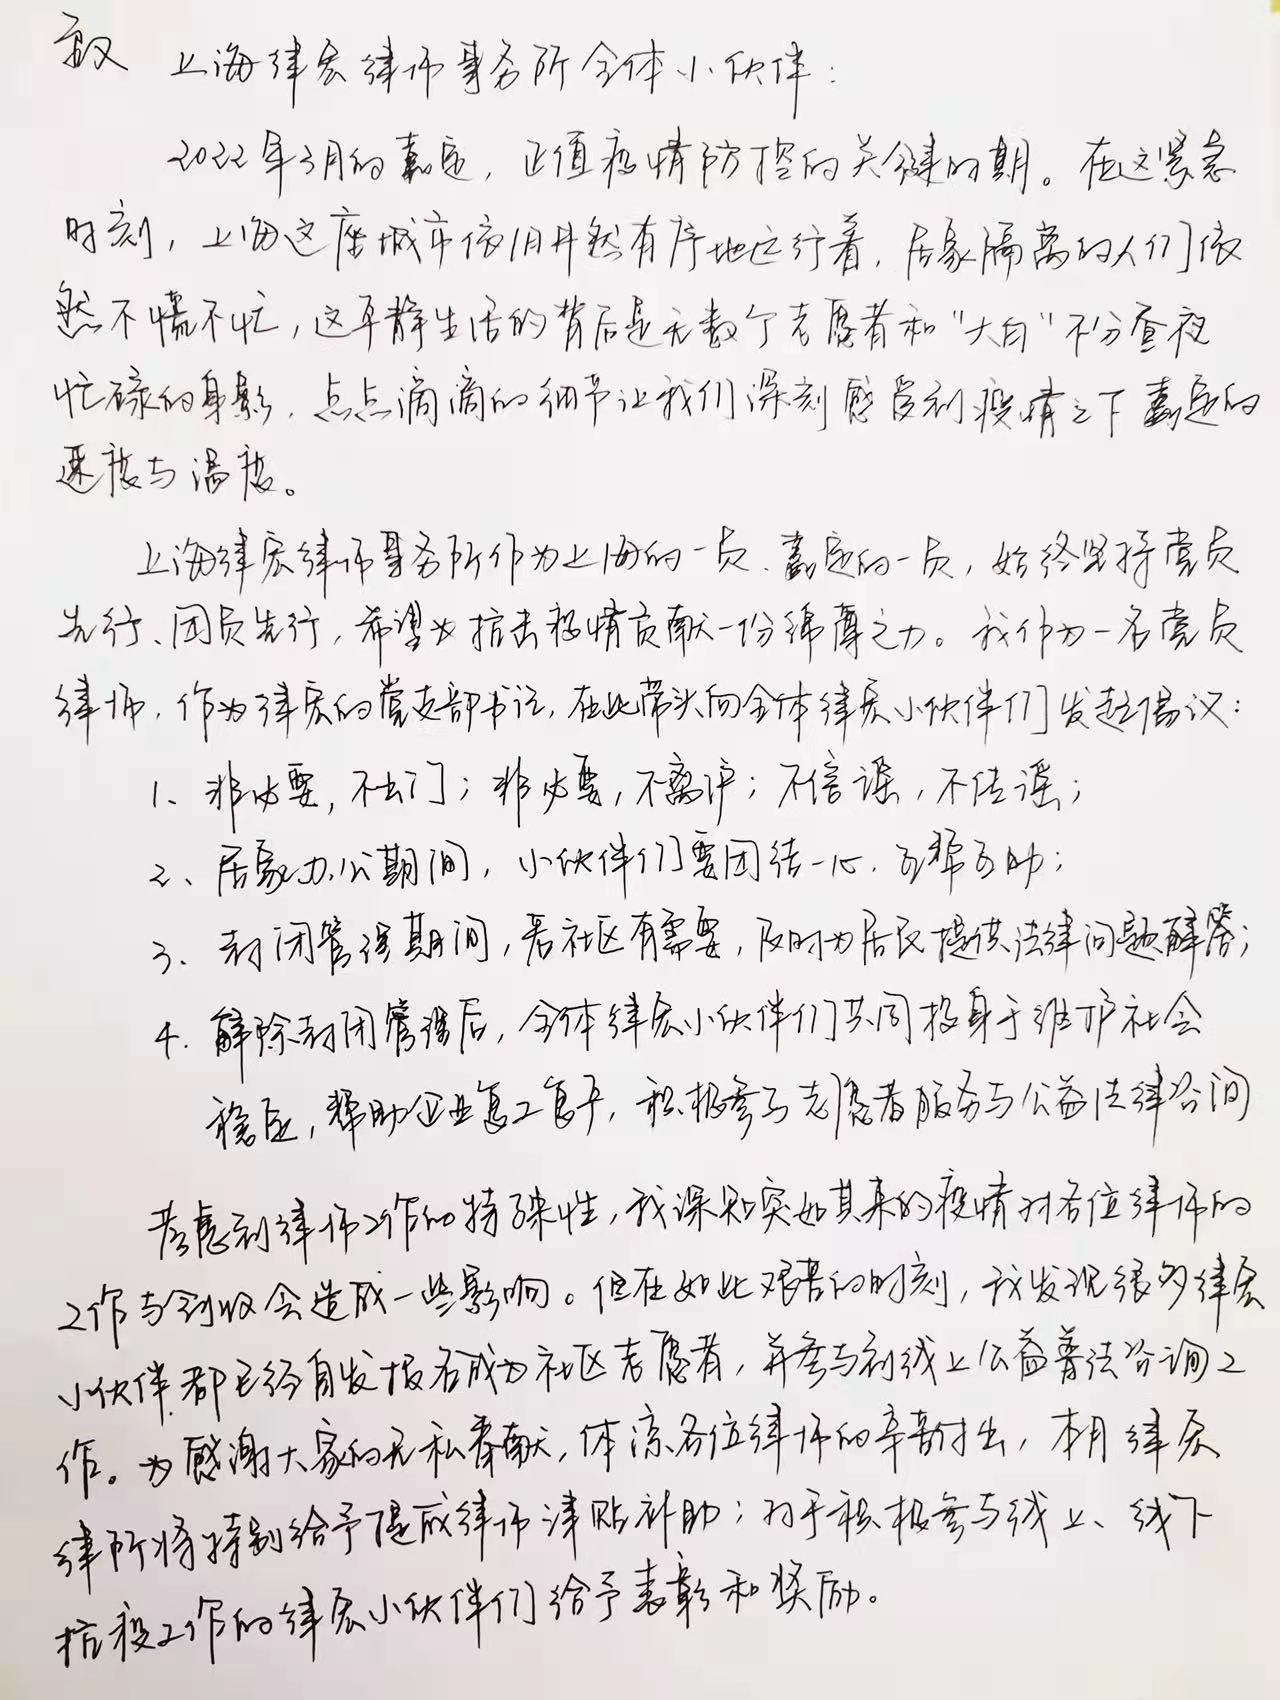 致 上海律宏律师事务所全体小伙伴：
2022年3月的嘉定，正值疫情防控的关键时期。在这紧急
时刻，上海这座城市依旧井然有序地运行着，居家隔离的人们依
然不慌不忙，这平静生活的背后是无数个志愿者和“大白”不分昼夜
忙碌的身影，点点滴滴的细节让我们深刻感受到疫情之下嘉定的
速度与温度。
上海律宏律师事务所作为上海的一员、嘉定的一员，始终坚持党员
先行、团员先行，希望为抗击疫情贡献一份绵薄之力。我作为一名党员
律师，作为律宏的党支部书记，在此带头向全体律宏小伙伴们发起倡议：
1、非必要，不出门；非必要，不离沪；不信谣，不传谣；
2、居家办公期间，小伙伴们要团结一心，互帮互助；
3、封闭管理期间，若社区有需要，及时为居民提供法律问题解答；
4、解除封闭管理后，全体律宏小伙伴们共同投身于维护社会
稳定，帮助企业复工复产，积极参与志愿者服务与公益法律咨询
考虑到律师工作的特殊性，我深知突如其来的疫情对各位律师的
工作与创收会造成一些影响。但在如此艰苦的时刻，我发现很多律宏
小伙伴都已经自发报名成为社区志愿者，并参与到线上公益普法咨询工
作。为感谢大家的无私奉献，体谅各位律师的辛勤付出，本月律宏
律所将特别给予提成律师津贴补助；对于积极参与线上、线下
抗疫工作的律宏小伙伴们给予表彰和奖励。